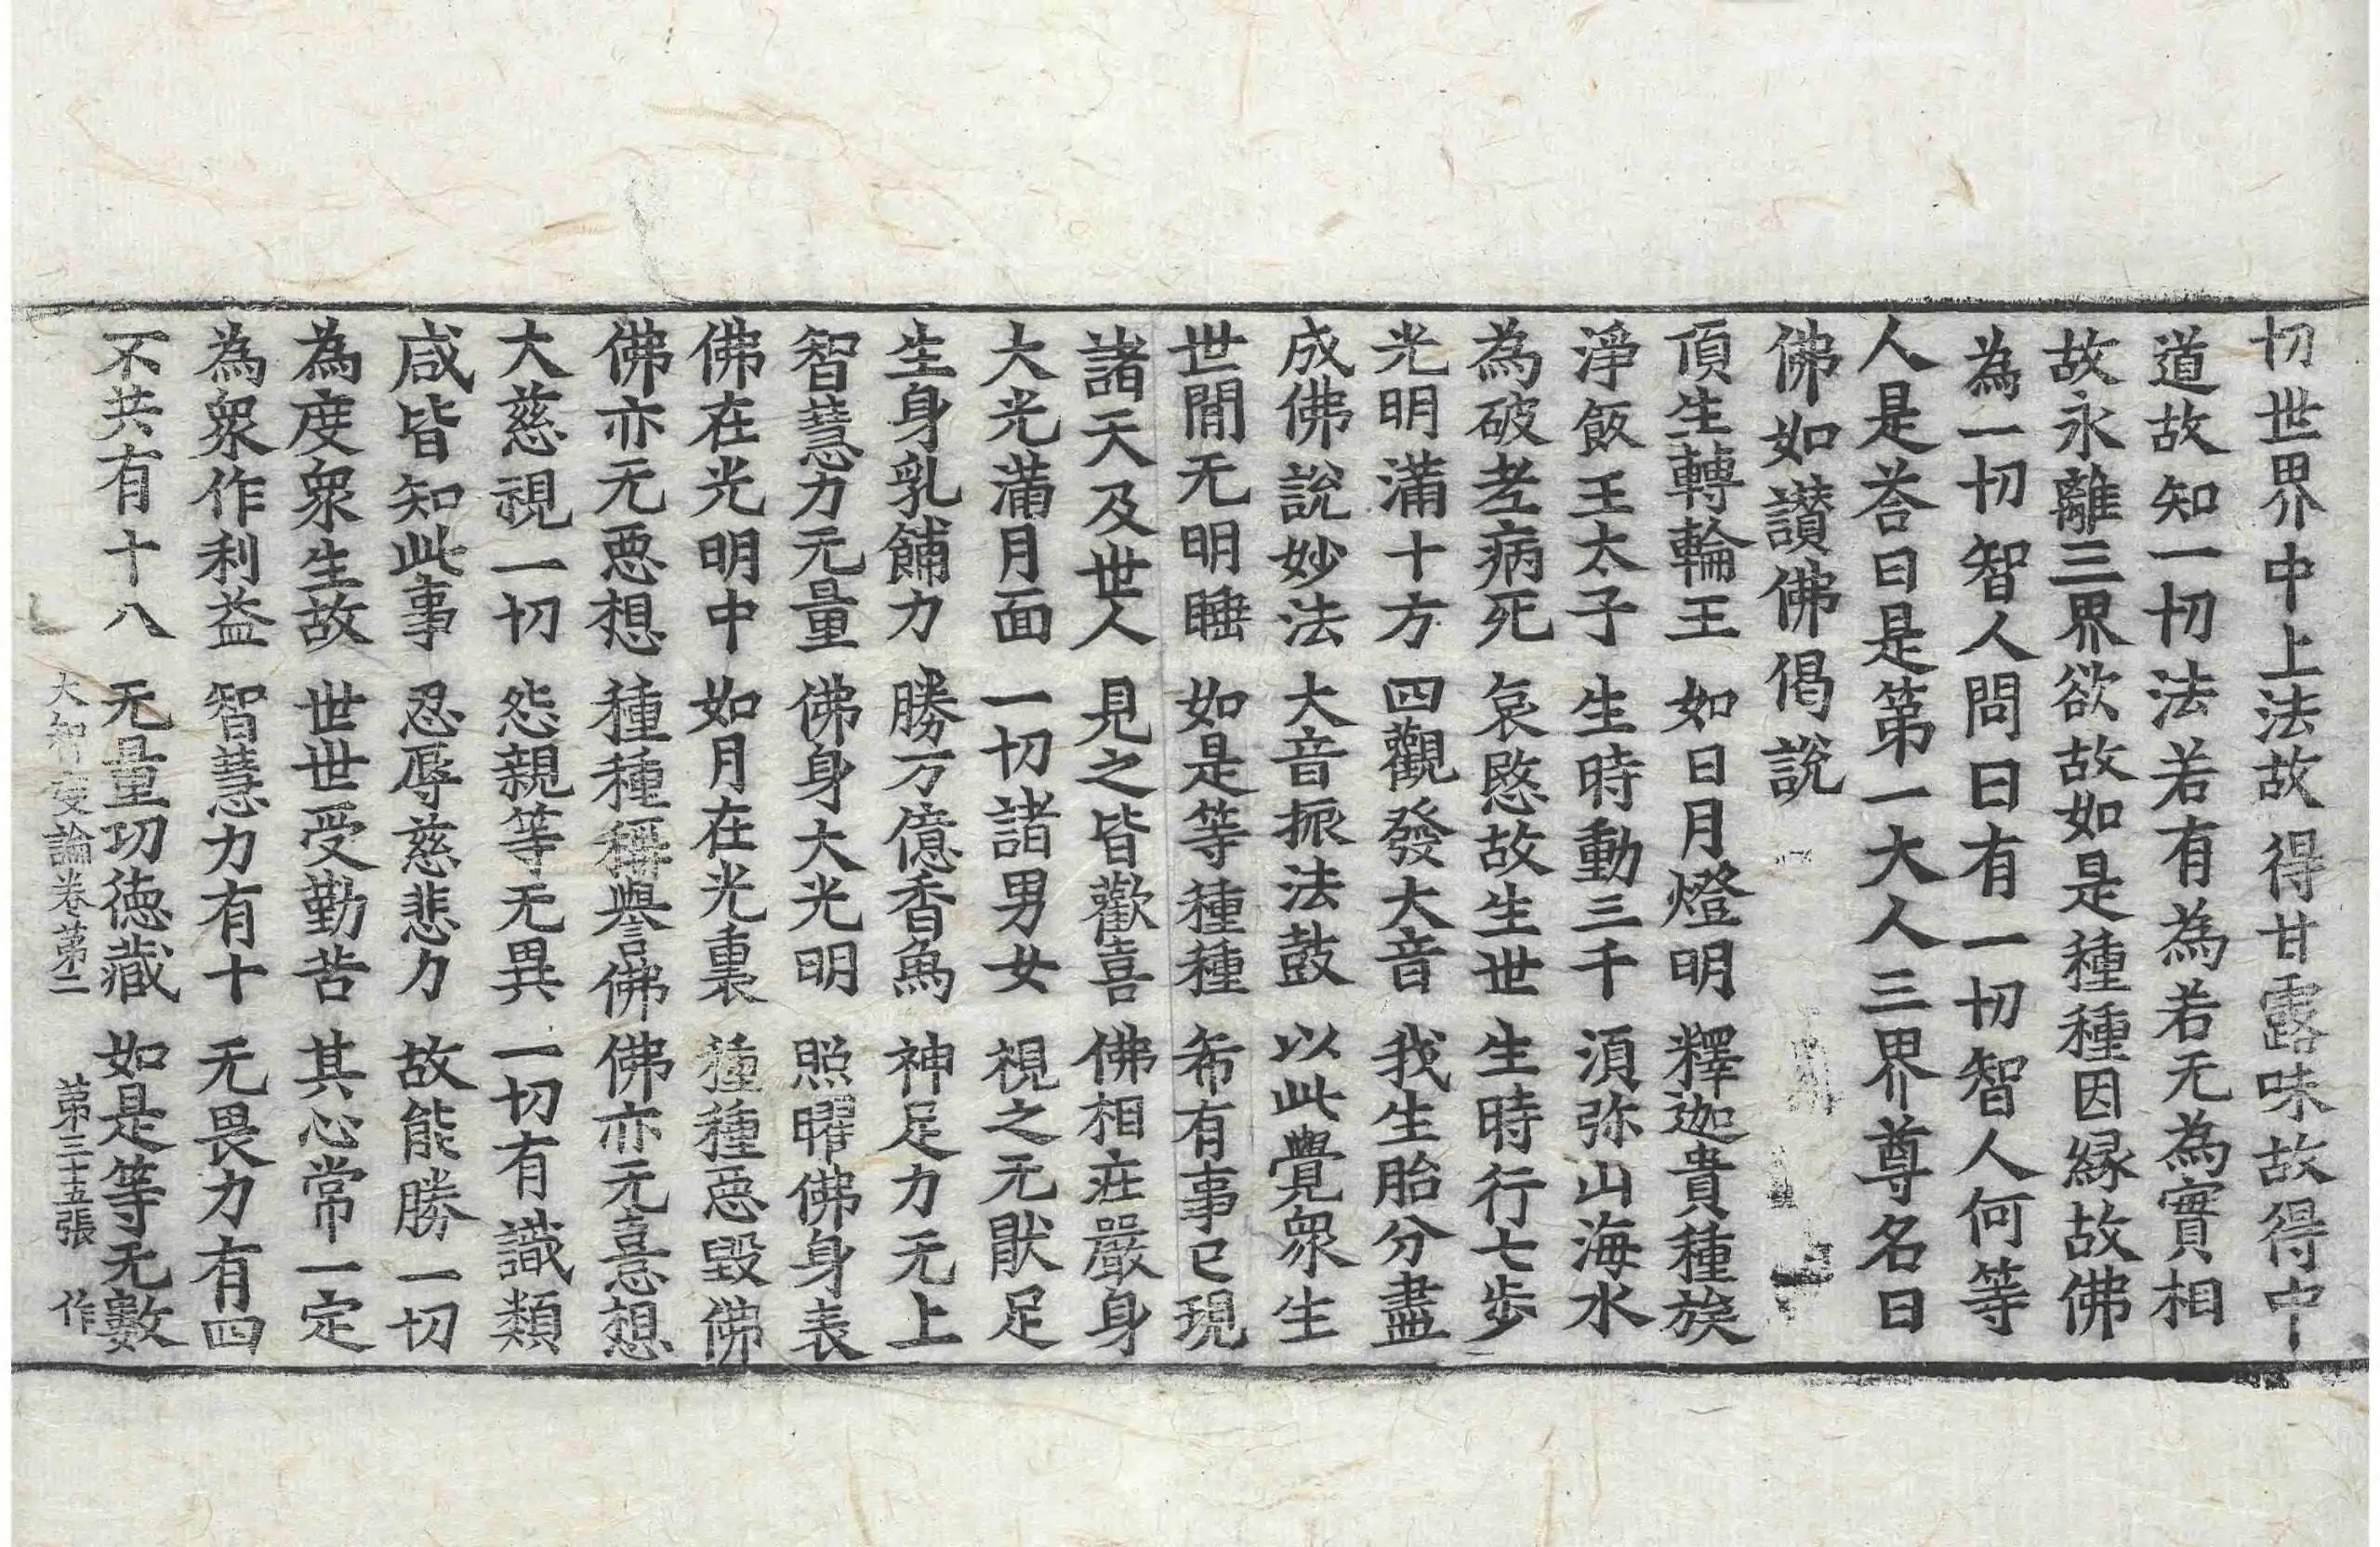 切世界中上法故得甘露味故得中
道故知一切法若有為若无為實相
故永離三界欲故如是種種因緣故佛
為一切智人問曰有一切智人何等
人是荅曰是第一大人三界尊名曰
佛如讃佛偈說
頂生轉輪王 如日月燈明 釋迦貴種族
淨飯王太子 生時動三千 湏弥山海水
為破老病死 哀愍故生世 生時行七步
光明滿十方 四觀發大音 我生胎分盡
成佛說妙法 大音振法鼓 以此覺眾生
世閒无明睡 如是等種種 希有事已現
諸天及世人 見之皆歡喜 佛相莊嚴身
大光滿月面 一切諸男女 視之无猒足
生身乳餔力 勝万億香𫠉 神足力无上
智慧力无量 佛身大光明 照曜佛身表
佛在光明中 如月在光裏 種種惡毀佛
佛亦无惡想 種種稱譽佛 佛亦无憙想
大慈視一切 怨親等无異 一切有識類
咸皆知此事 忍辱慈悲力 故能勝一切
為度眾生故 世世受勤苦 其心常一定
為眾作利益 智慧力有十 无畏力有四
不共有十八 无量功德藏 如是等无數
大智度論卷苐二 苐三十五張 作